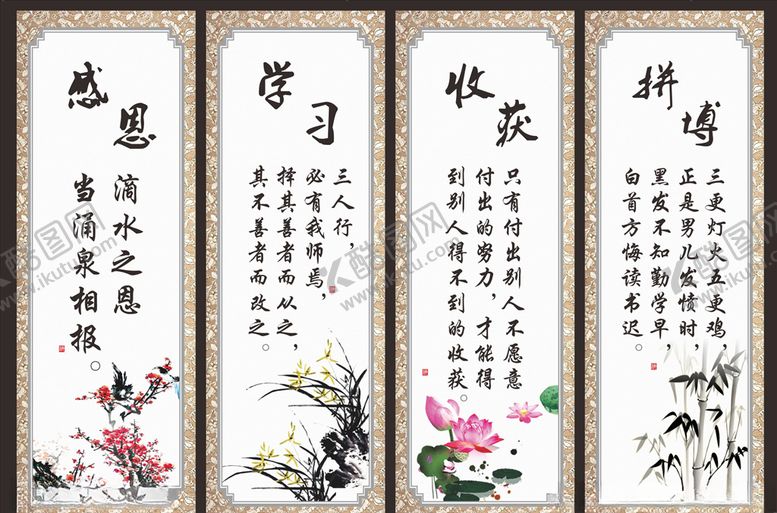 感恩
滴水之恩
当涌泉相报。
学习
三人行，
必有我师焉，
择其善者而从之，
其不善者而改之。
收获
只有付出别人不愿意
付出的努力，才能得
到别人得不到的收获。
拼搏
三更灯火五更鸡，
正是男儿发愤时，
黑发不知勤学早，
白首方悔读书迟。
酷图网
www.ikutu.com